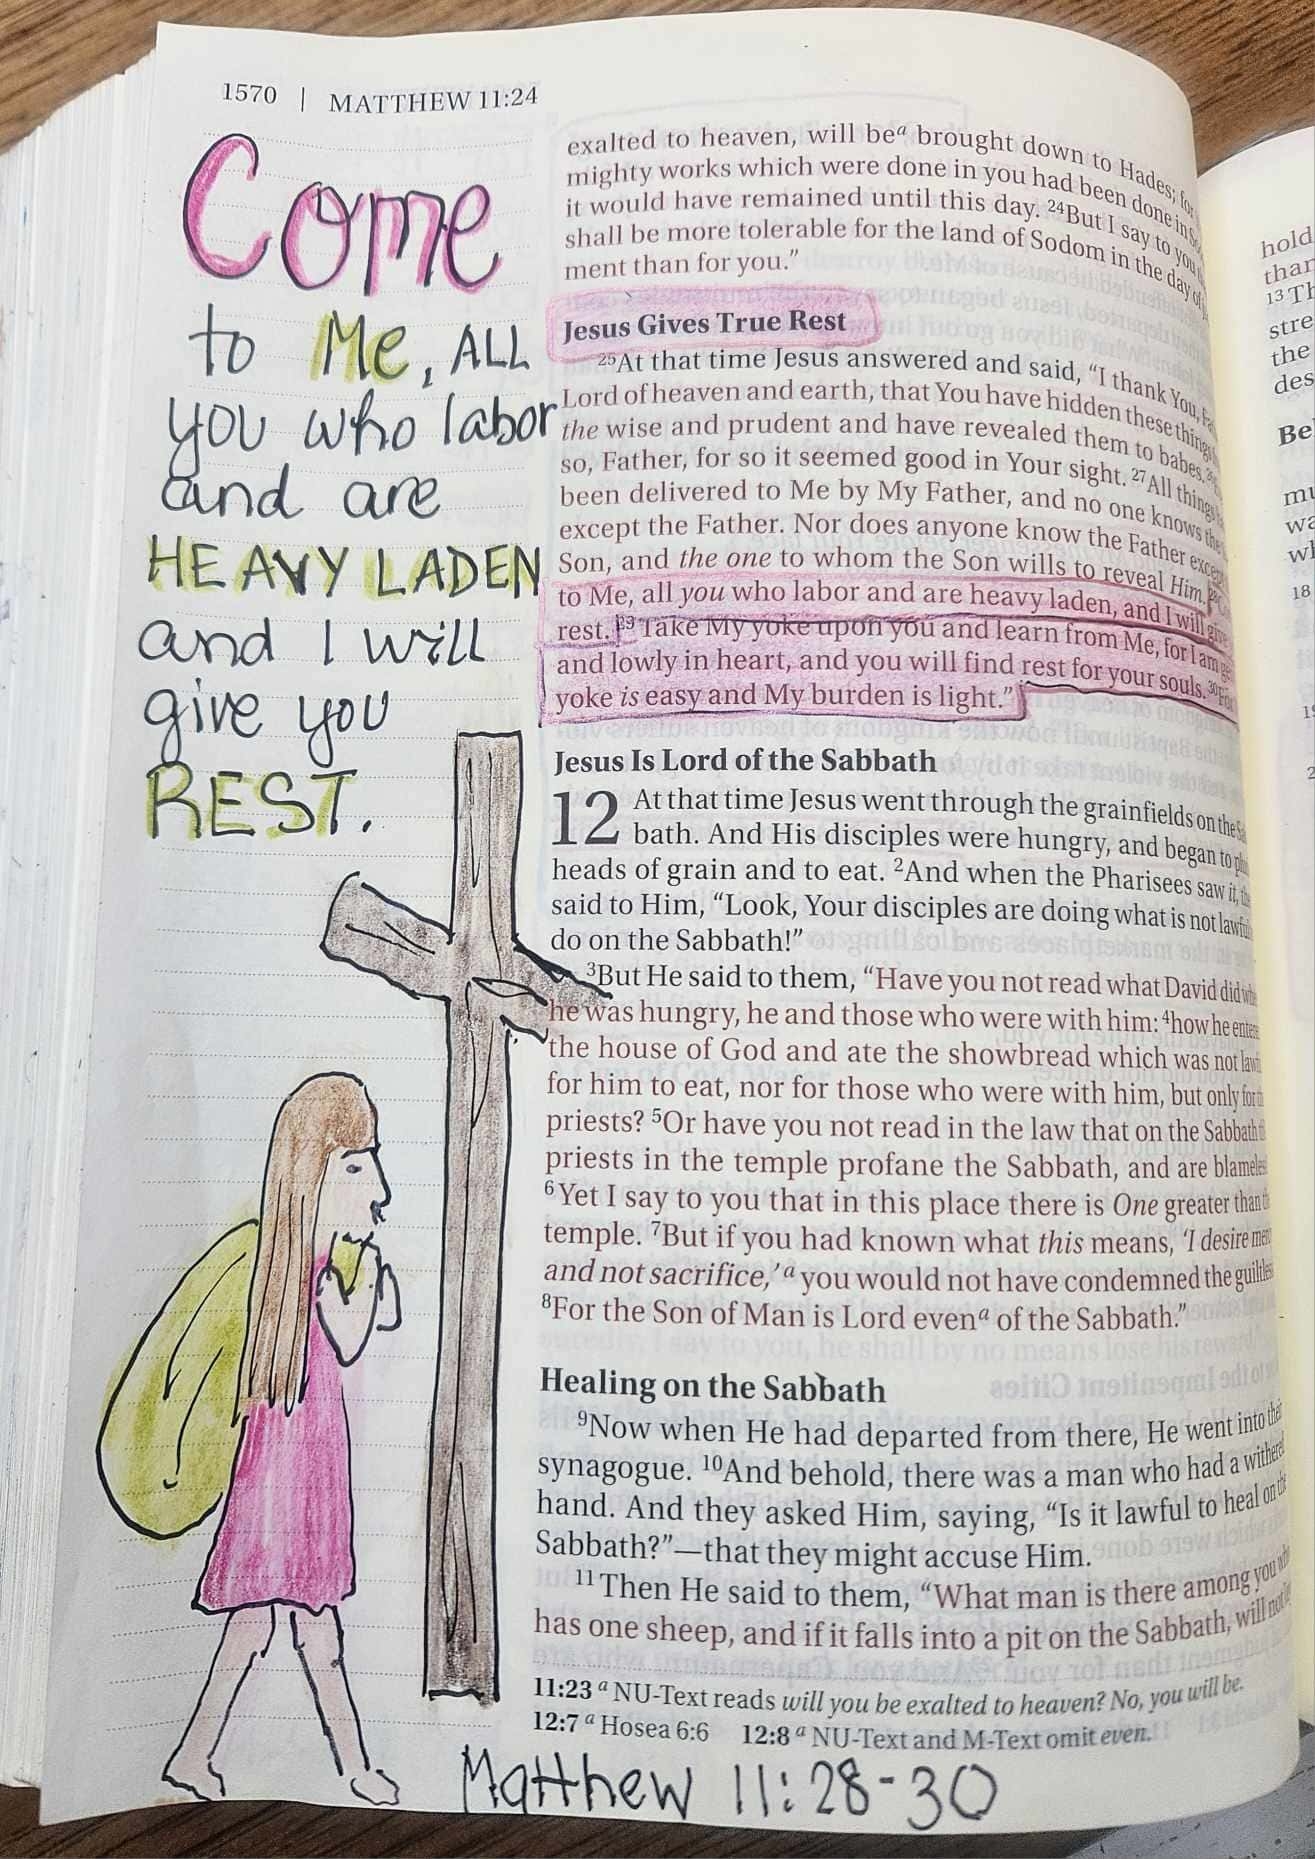 1570 | MATTHEW 11:24
Come
to Me, ALL
you who labor
and are
HEAVY LADEN
and I will
give you
REST.
exalted to heaven, will beᵃ brought down to Hades; for
mighty works which were done in you had been done in
it would have remained until this day. ²⁴But I say to you
shall be more tolerable for the land of Sodom in the day of
ment than for you.”
Jesus Gives True Rest
²⁵At that time Jesus answered and said, “I thank You,
Lord of heaven and earth, that You have hidden these things
the wise and prudent and have revealed them to babes.
so, Father, for so it seemed good in Your sight. ²⁷All things
been delivered to Me by My Father, and no one knows the
except the Father. Nor does anyone know the Father except
Son, and the one to whom the Son wills to reveal Him.
to Me, all you who labor and are heavy laden, and I will give
rest. ²⁹Take My yoke upon you and learn from Me, for I am
and lowly in heart, and you will find rest for your souls. ³⁰For
yoke is easy and My burden is light.”
Jesus Is Lord of the Sabbath
12 At that time Jesus went through the grainfields on the
bath. And His disciples were hungry, and began to
heads of grain and to eat. ²And when the Pharisees saw it,
said to Him, “Look, Your disciples are doing what is not
do on the Sabbath!”
³But He said to them, “Have you not read what David did
he was hungry, he and those who were with him: ⁴how he
the house of God and ate the showbread which was not
for him to eat, nor for those who were with him, but only for
priests? ⁵Or have you not read in the law that on the Sabbath
priests in the temple profane the Sabbath, and are
⁶Yet I say to you that in this place there is One greater than
temple. ⁷But if you had known what this means, ‘I desire
and not sacrifice,’ᵃ you would not have condemned the
⁸For the Son of Man is Lord evenᵃ of the Sabbath.”
Healing on the Sabbath
⁹Now when He had departed from there, He went into their
synagogue. ¹⁰And behold, there was a man who had a withered
hand. And they asked Him, saying, “Is it lawful to heal on the
Sabbath?”—that they might accuse Him.
¹¹Then He said to them, “What man is there among you
has one sheep, and if it falls into a pit on the Sabbath, will not
11:23 ᵃ NU-Text reads will you be exalted to heaven? No, you will be.
12:7 ᵃ Hosea 6:6 12:8 ᵃ NU-Text and M-Text omit even.
Matthew 11:28-30
hold
the